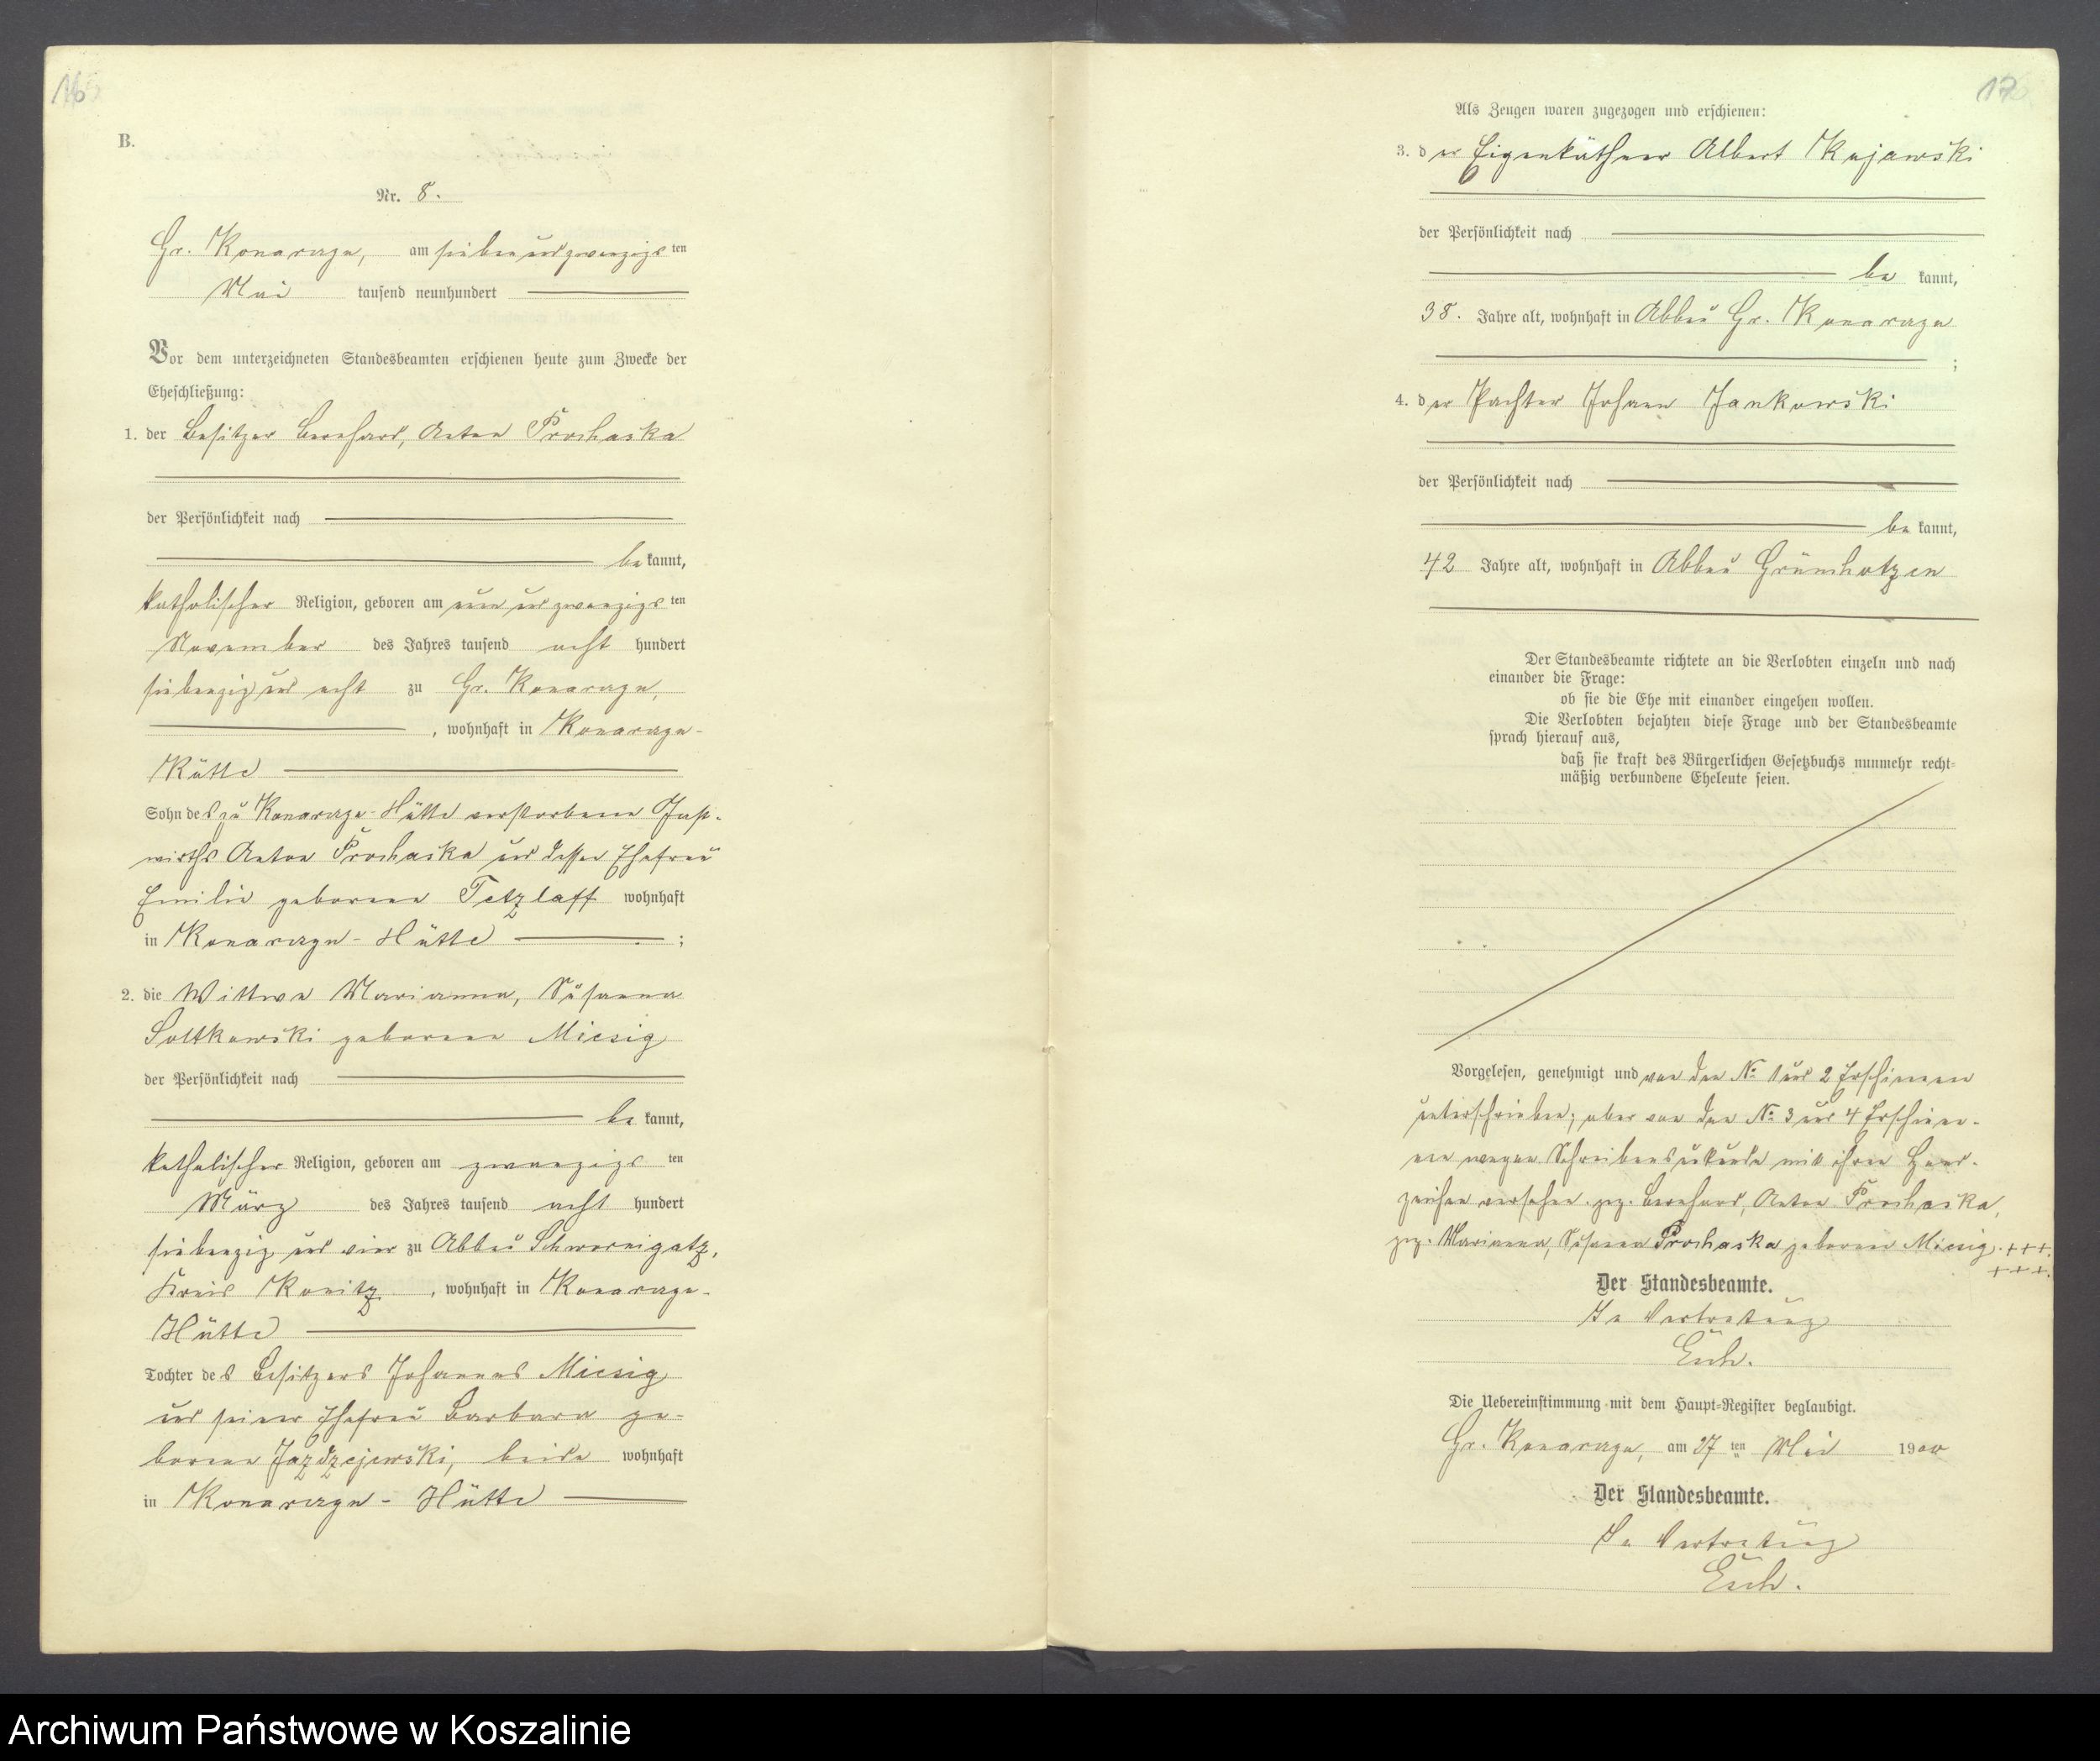 16
B.
Nr. 8.
Gr. Konarczyn, am siebenundzwanzigsten
Mai tausend neunhundert
Vor dem unterzeichneten Standesbeamten erschienen heute zum Zwecke der
Eheschließung:
1. der Besitzer Bernhard, Anton Prochaska
der Persönlichkeit nach
bekannt,
katholischer Religion, geboren am neunundzwanzigsten
November des Jahres tausend acht hundert
siebenzig und acht zu Gr. Konarczyn,
, wohnhaft in Konarczyn-
Hütte
Sohn des zu Konarczyn-Hütte verstorbenen Gast-
wirths Anton Prochaska und dessen Ehefrau
Emilie geborene Tetzlaff wohnhaft
in Konarczyn-Hütte ;
2. die Wittwe Marianna, Susanna
Soltkowski geborene Miesig
der Persönlichkeit nach
bekannt,
katholischer Religion, geboren am zwanzigsten
März des Jahres tausend acht hundert
siebenzig und vier zu Abbau Schwornigatz,
Kreis Konitz , wohnhaft in Konarczyn-
Hütte
Tochter des Besitzers Johannes Miesig
und seiner Ehefrau Barbara ge-
borene Jazdzejewski, beide wohnhaft
in Konarczyn-Hütte
17
Als Zeugen waren zugezogen und erschienen:
3. der Eigenkäthner Albert Kujawski
der Persönlichkeit nach
be kannt,
38. Jahre alt, wohnhaft in Abbau Gr. Konarczyn
;
4. der Pächter Johann Jankowski
der Persönlichkeit nach
be kannt,
42 Jahre alt, wohnhaft in Abbau Grünchotzen
Der Standesbeamte richtete an die Verlobten einzeln und nach
einander die Frage:
ob sie die Ehe mit einander eingehen wollen.
Die Verlobten bejahten diese Frage und der Standesbeamte
sprach hierauf aus,
daß sie kraft des Bürgerlichen Gesetzbuchs nunmehr recht-
mäßig verbundene Eheleute seien.
Vorgelesen, genehmigt und von den No 1 und 2 Erschienenen
unterschrieben; aber von den No 3 und 4 Erschiene-
nen wegen Schreibensunkunde mit ihren Hand-
zeichen versehen. gez. Bernhard, Anton Prochaska,
gez. Marianna, Susanna Prochaska geborene Miesig. +++.
+++.
Der Standesbeamte.
In Vertretung
Esch.
Die Uebereinstimmung mit dem Haupt-Register beglaubigt.
Gr. Konarczyn, am 27ten Mai 1900
Der Standesbeamte.
In Vertretung
Esch.
Archiwum Państwowe w Koszalinie